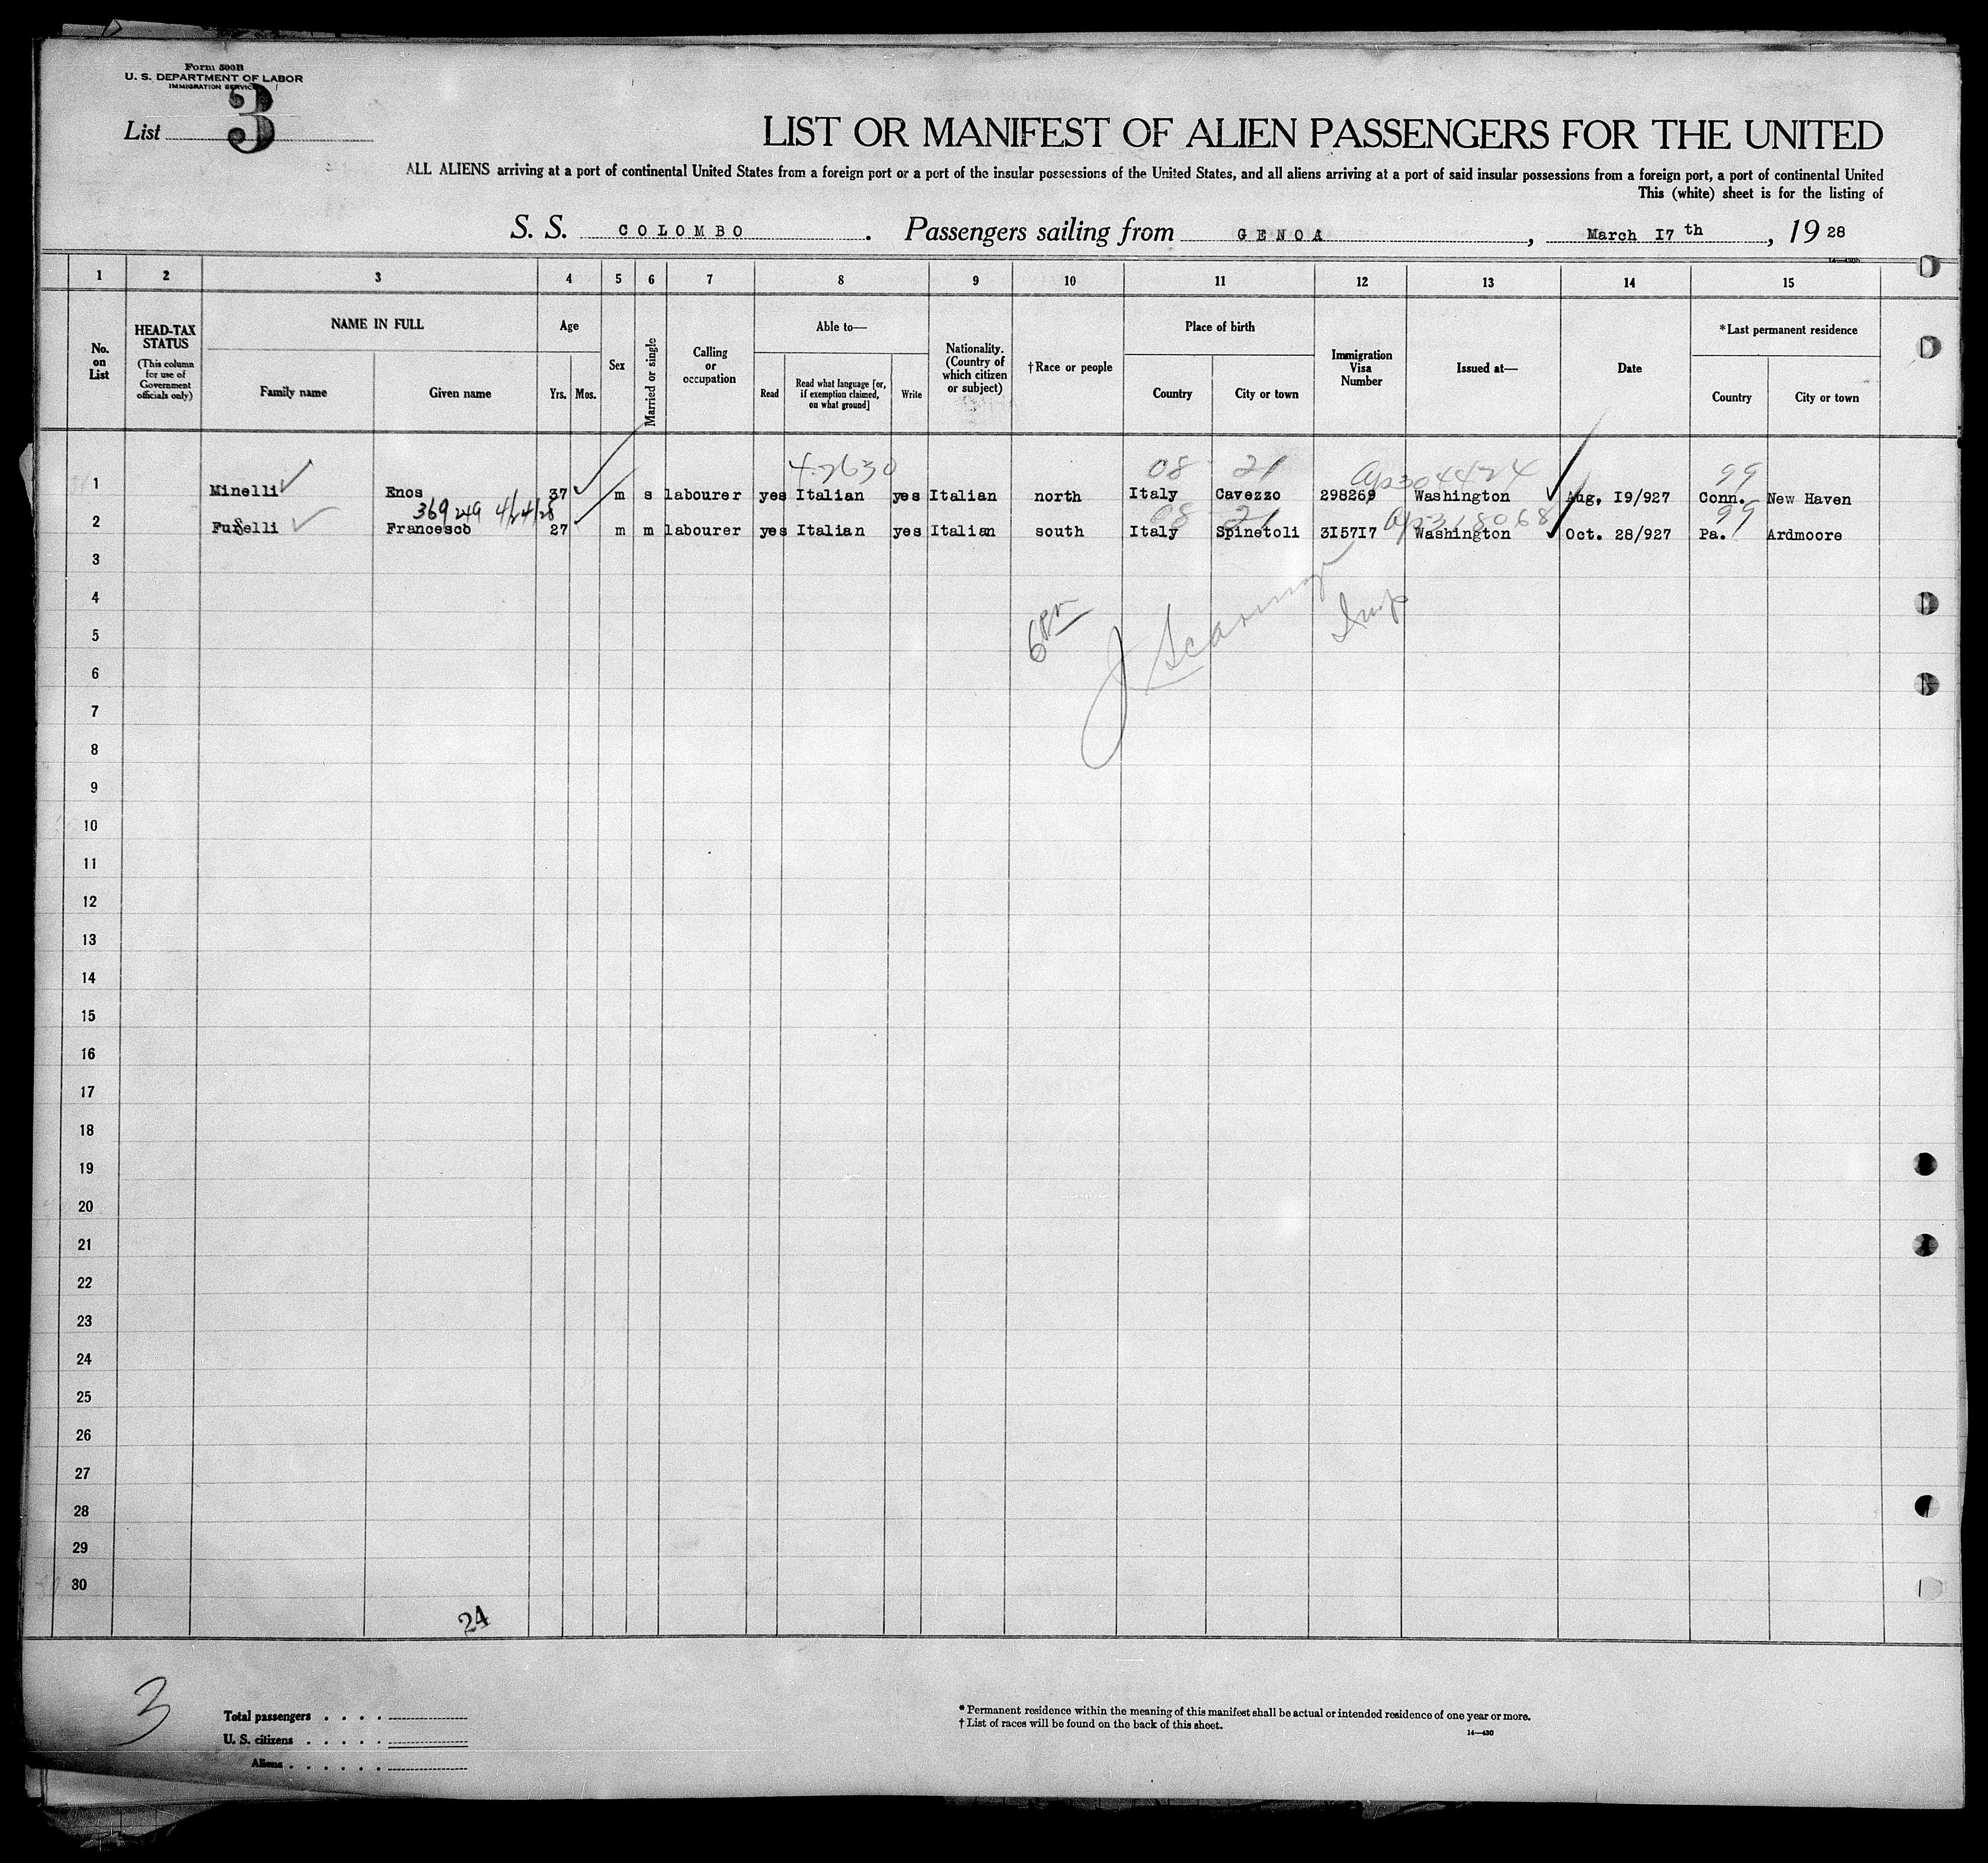 Form 500B
U. S. DEPARTMENT OF LABOR
IMMIGRATION SERVICE
List 3
LIST OR MANIFEST OF ALIEN PASSENGERS FOR THE UNITED
ALL ALIENS arriving at a port of continental United States from a foreign port or a port of the insular possessions of the United States, and all aliens arriving at a port of said insular possessions from a foreign port, a port of continental United
This (white) sheet is for the listing of
S. S. COLOMBO. Passengers sailing from GENOA, March I7th, 19 28
1 2 3 4 5 6 7 8 9 10 11 12 13 14 15
No. on List
HEAD-TAX STATUS
(This column for use of Government officials only)
NAME IN FULL
Family name
Given name
Age
Yrs.
Mos.
Sex
Married or single
Calling or occupation
Able to—
Read
Read what language [or, if exemption claimed, on what ground]
Write
Nationality. (Country of which citizen or subject)
†Race or people
Place of birth
Country
City or town
Immigration Visa Number
Issued at—
Date
*Last permanent residence
Country
City or town
4-2630 08 21 99
1 Minelli Enos 37 m s labourer yes Italian yes Italian north Italy Cavezzo 298269 Washington Aug, I9/927 Conn. New Haven
369249 4/24/28 08 21 99
2 Francesco 27 m m labourer yes Italian yes Italian south Italy Spinetoli 3I57I7 Washington Oct. 28/927 Pa. Ardmoore
3
4
5
6
7
8
9
10
11
12
13
14
15
16
17
18
19
20
21
22
23
24
25
26
27
28
29
30
24
3
Total passengers
U. S. citizens
Aliens
*Permanent residence within the meaning of this manifest shall be actual or intended residence of one year or more.
†List of races will be found on the back of this sheet.
14—430